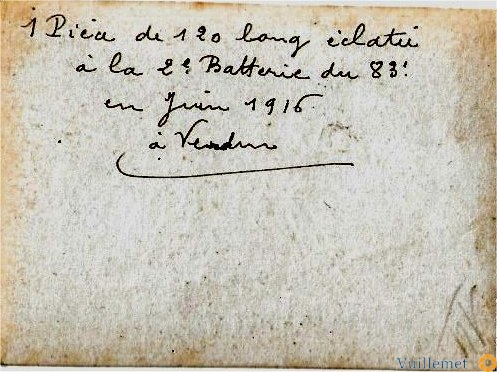 1 Pièce de 120 long éclatée
à la 2e Batterie du 83e
en Juin 1916
à Verdun
Vuillemet